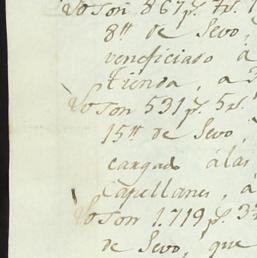 Son 867 ps. 7 rs.
8 tt de Sevo,
veneficiado á
tienda, a
Son 531 ps. 5 rs.
15 tt de Sevo,
cargado á las
Capellanes, á
Son 1.719 ps. 3
de Sevo, que